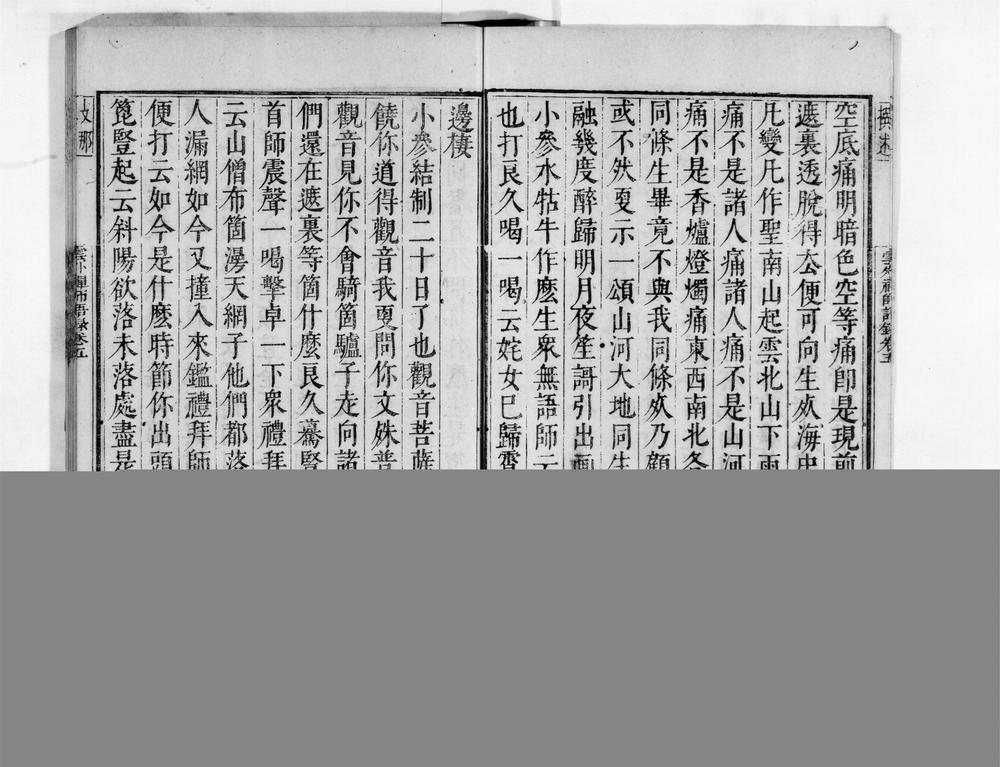 空底痛明暗色空等痛卽是現前
遮裏透脫得去便可向生死海中
凡變凡作聖南山起雲北山下雨
痛不是諸人痛諸人痛不是山河
痛不是香爐燈燭痛東西南北各
同條生畢竟不與我同條死乃顧
或不然更示一頌山河大地同生
融幾度醉歸明月夜笙謌引出画
小參水牯牛作麽生衆無語師云
也打良久喝一喝云姹女已歸霄
邊棲
小參結制二十日了也觀音菩薩
饒你道得觀音我更問你文殊普
觀音見你不會騎箇驢子走向諸
們還在遮裏等箇什麽良久驀豎
首師震聲一喝擊卓一下衆禮拜
云山僧布箇漫天網子他們都落
人漏網如今又撞入來鑑禮拜師
便打云如今是什麽時節你出頭
篦豎起云斜陽欲落未落處盡是